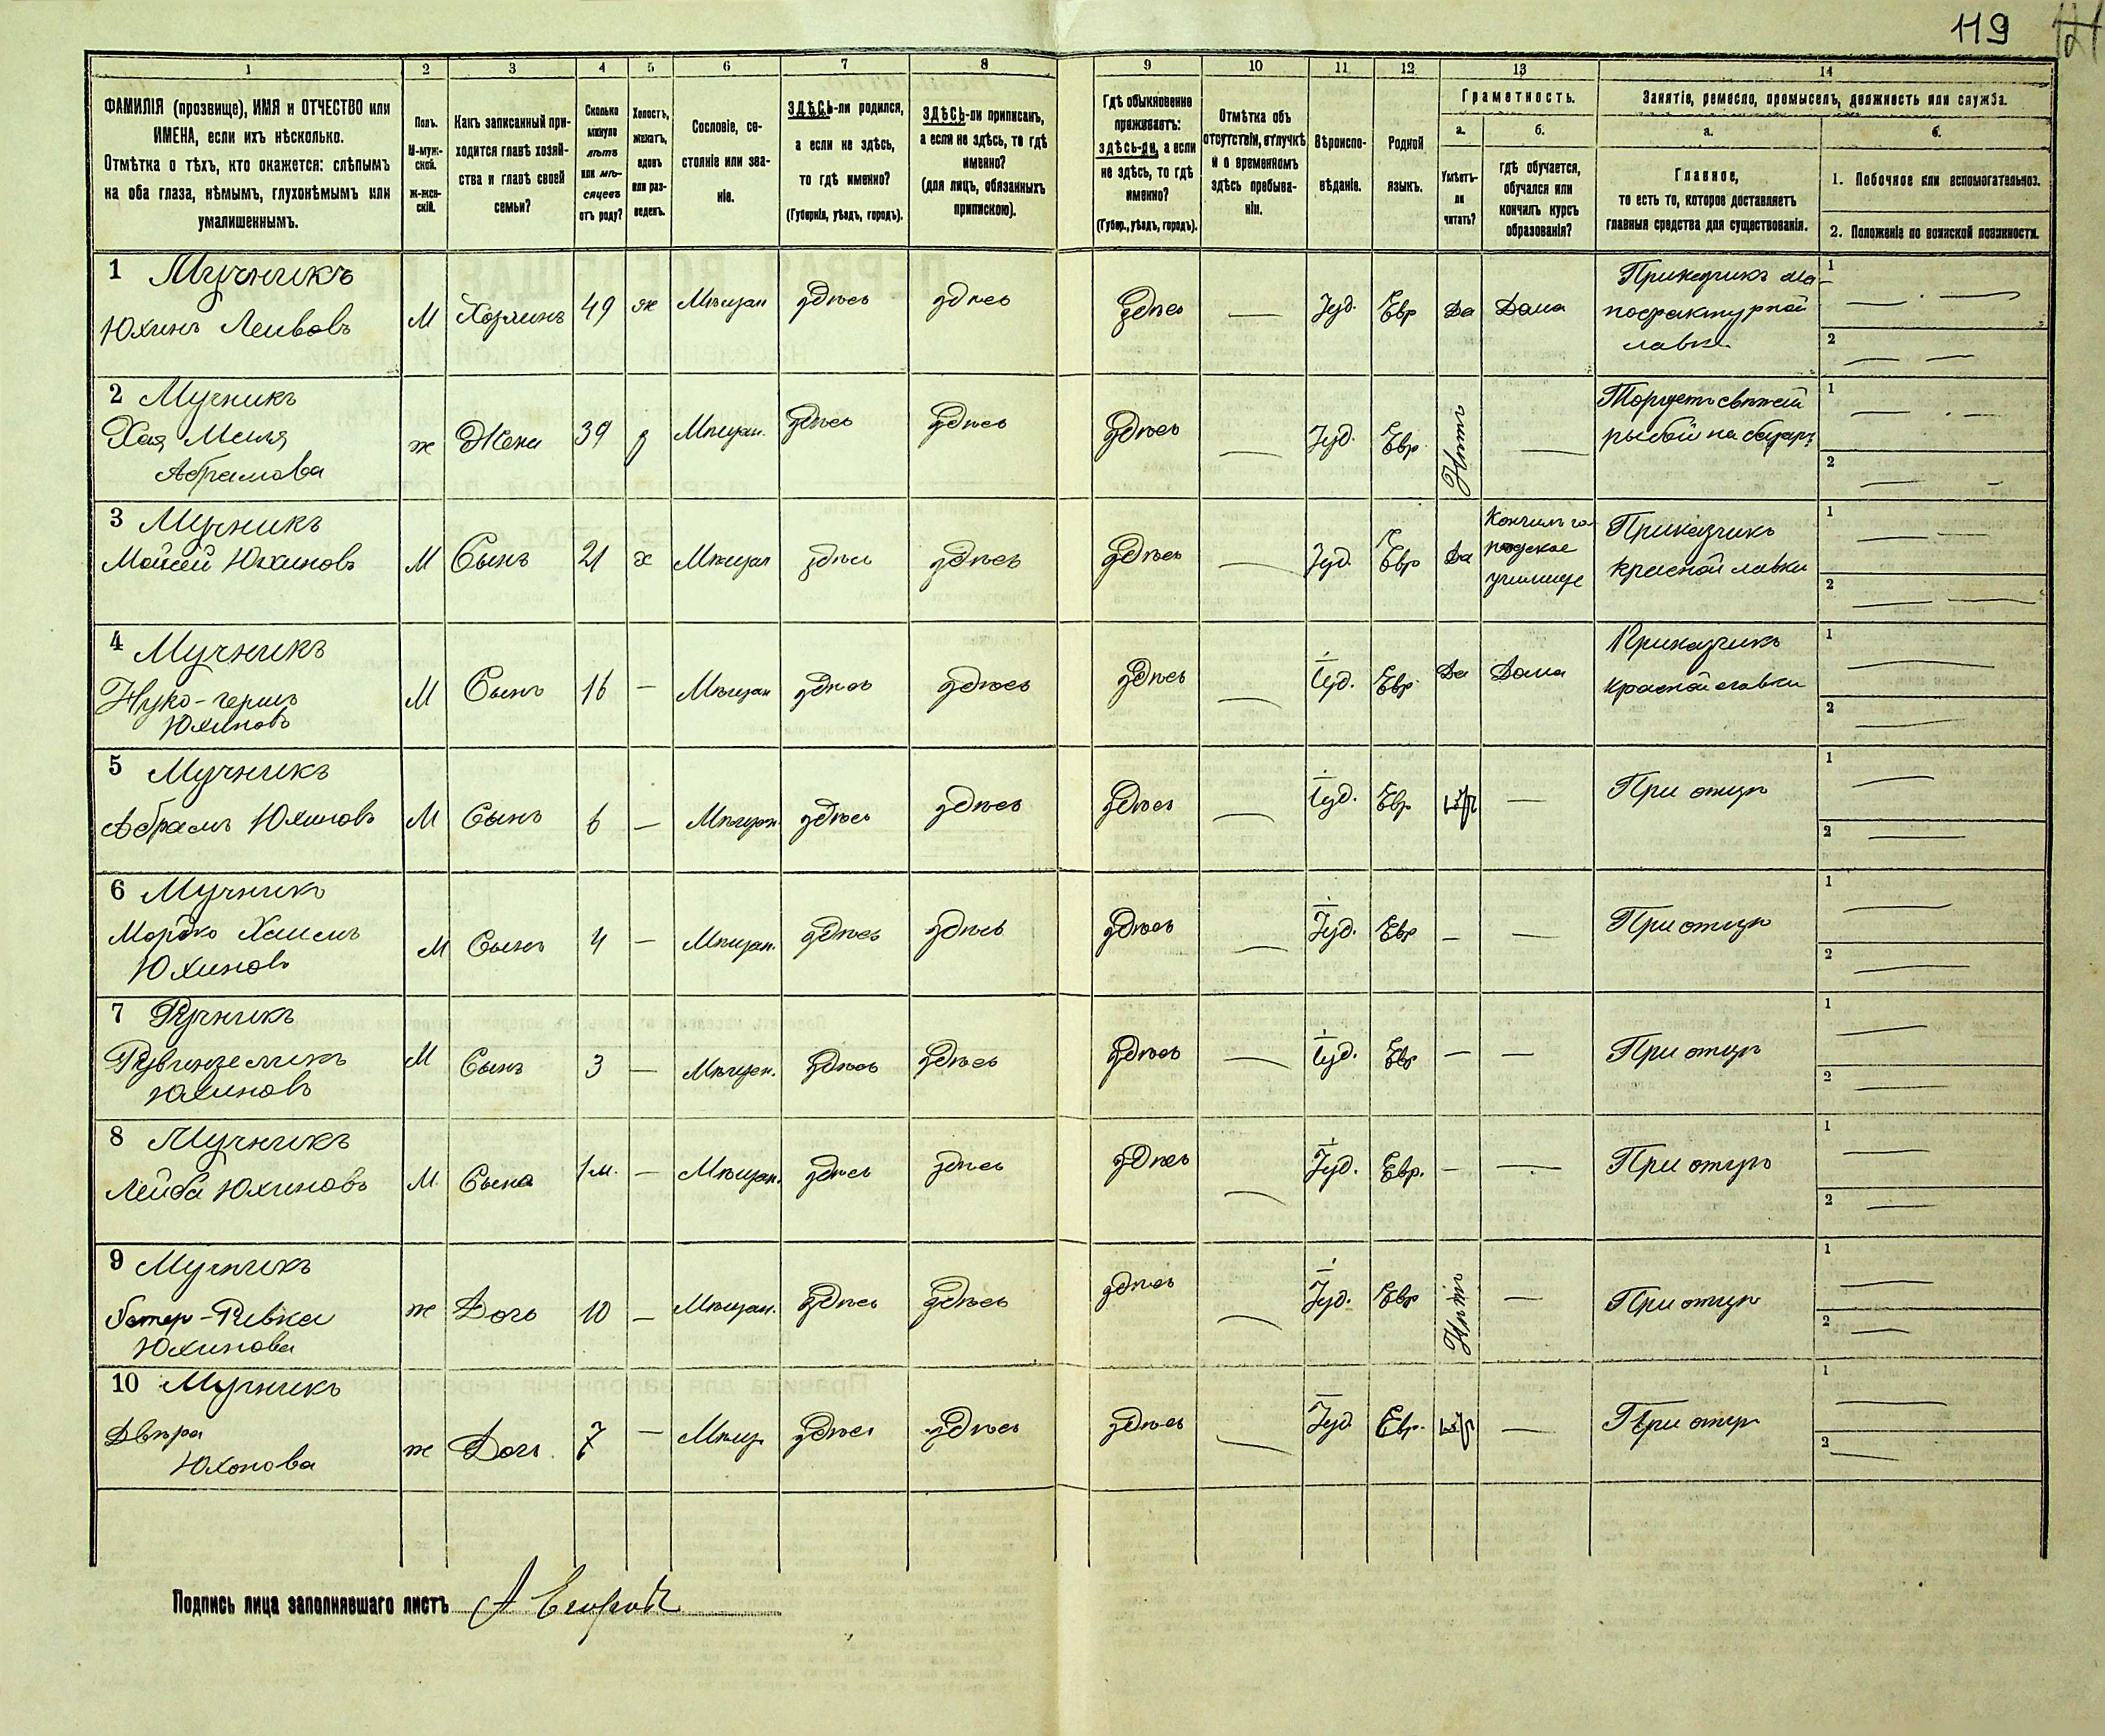 119
121
1 2 3 4 5 6 7 8 9 10 11 12 13 14
ФАМИЛІЯ (прозвище), ИМЯ и ОТЧЕСТВО или
ИМЕНА, если ихъ нѣсколько.
Отмѣтка о тѣхъ, кто окажется: слѣпымъ
на оба глаза, нѣмымъ, глухонѣмымъ или
умалишеннымъ.
Полъ.
М-муж-
ской.
ж-жен-
скій.
Какъ записанный при-
ходится главѣ хозяй-
ства и главѣ своей
семьи?
Сколько
минуло
лѣтъ
или мѣ-
сяцевъ
отъ роду?
Холостъ,
женатъ,
вдовъ
или раз-
веденъ.
Сословіе, со-
стояніе или зва-
ніе.
ЗДѢСЬ-ли родился,
а если не здѣсь,
то гдѣ именно?
(Губернія, уѣздъ, городъ).
ЗДѢСЬ-ли приписанъ,
а если не здѣсь, то гдѣ
именно?
(для лицъ, обязанныхъ
припискою).
Гдѣ обыкновенно
проживаетъ:
здѣсь-ли, а если
не здѣсь, то гдѣ
именно?
(Губер., уѣздъ, городъ).
Отмѣтка объ
отсутствіи, отлучкѣ
и о временномъ
здѣсь пребыва-
ніи.
Вѣроиспо-
вѣданіе.
Родной
языкъ.
Грамотность.
а.
Умѣетъ-
ли
читать?
б.
гдѣ обучается,
обучался или
кончилъ курсъ
образованія?
Занятіе, ремесло, промыселъ, должность или служба.
а.
Главное,
то есть то, которое доставляетъ
главныя средства для существованія.
б.
1. Побочное или вспомогательное.
2. Положеніе по воинской повинности.
1 Мучникъ
Юхинъ Лейвовъ
М Хозяинъ 49 ж Мѣщан здѣсь здѣсь здѣсь — Іуд. Евр Да Дома
Приказчикъ ма-
нофактурной
лавки
1 —
2 —
2 Мучникъ
Хая Меиля
Абрамова
ж Жена 39 з Мѣщан. здѣсь здѣсь здѣсь — Іуд. Евр. Нѣтъ —
Торгуетъ свѣжей
рыбой на базарѣ
1 —
2 —
3 Мучникъ
Мойсей Юхиновъ
М Сынъ 21 х Мѣщан здѣсь здѣсь здѣсь — Іуд. Евр Да
Кончилъ го-
родское
училище
Приказчикъ
красной лавки
1 —
2 —
4 Мучникъ
Нухо-герш
Юхиновъ
М Сынъ 16 — Мѣщан здѣсь здѣсь здѣсь — Іуд. Евр. Да Дома
Приказчикъ
красной лавки
1 —
2 —
5 Мучникъ
Абрамъ Юхиновъ
М Сынъ 6 — Мѣщан. здѣсь здѣсь здѣсь — Іуд. Евр — При отцѣ
1 —
2 —
6 Мучникъ
Мордко Хаимъ
Юхиновъ
М Сынъ 4 — Мѣщан. здѣсь здѣсь здѣсь — Іуд. Евр — — При отцѣ
1 —
2 —
7
Юхиновъ
М Сынъ 3 — Мѣщан. здѣсь здѣсь здѣсь — Іуд. Евр — — При отцѣ
1 —
2 —
8 Мучникъ
Лейба Юхиновъ
М. Сынъ 1 м. — Мѣщан. здѣсь здѣсь здѣсь — Іуд. Евр. — — При отцѣ
1 —
2 —
9 Мучникъ
Эстер-Ривка
Юхинова
ж Дочь 10 — Мѣщан. здѣсь здѣсь здѣсь — Іуд. Евр Нѣтъ — При отцѣ
1 —
2 —
10 Мучникъ
Двѣра
Юхонова
ж Дочь 7 — Мѣщ. здѣсь здѣсь здѣсь — Іуд Евр. — При отцѣ
1 —
2 —
Подпись лица заполнявшаго листъ